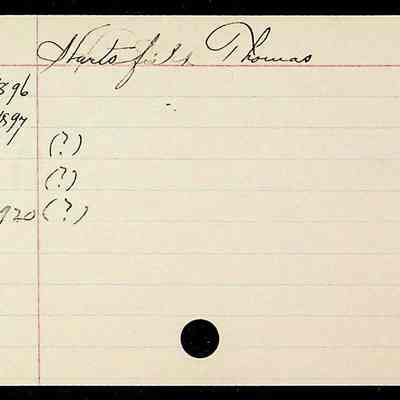 Hartsfield Thomas
896
1897
(?)
(?)
920 (?)